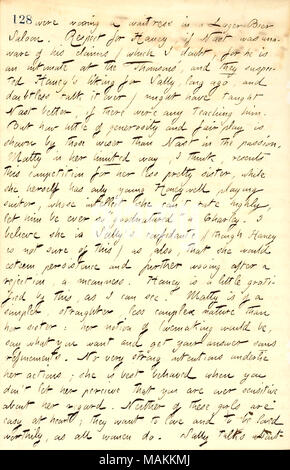 128
were wooing a waitress in a Lager Beer
Saloon. Respect for Haney if Nast was una-
ware of his claims (which I doubt, for he is
an intimate at the Thomsons, and they suspec-
ted Haney's liking for Sally long ago and
doubtless talk it over) might have taught
Nast better, if there were any teaching him.
But how little of generosity and fair play is
shown by those wiser than Nast in the passion.
Matty in her limited way, I think, resents
this competition for her less pretty sister, while
she herself has only young Honeywell playing
suitor, whose intellect she can't rate highly,
let him be ever so goodnatured to Charley. I
believe she is Sally's confidante (though Haney
is not sure of this) as also that she would
esteem persistence and further wooing after a
rejection, a meanness. Haney is a little grati-
fied by this, as I can see. Matty is of a
simpler, straighter less complex nature than
her sister: her notion of lovemaking would be,
say what you want and get your answer sans
refinements. No very strong intentions underlie
her actions; she is best behaved when you
don't let her perceive that you are over sensitive
about her regard. Neither of these girls are
easy at heart; they want to love and to be loved
worthily, as all women do. Sally talks about
alamy
Image ID: MAKKMJ
www.alamy.com